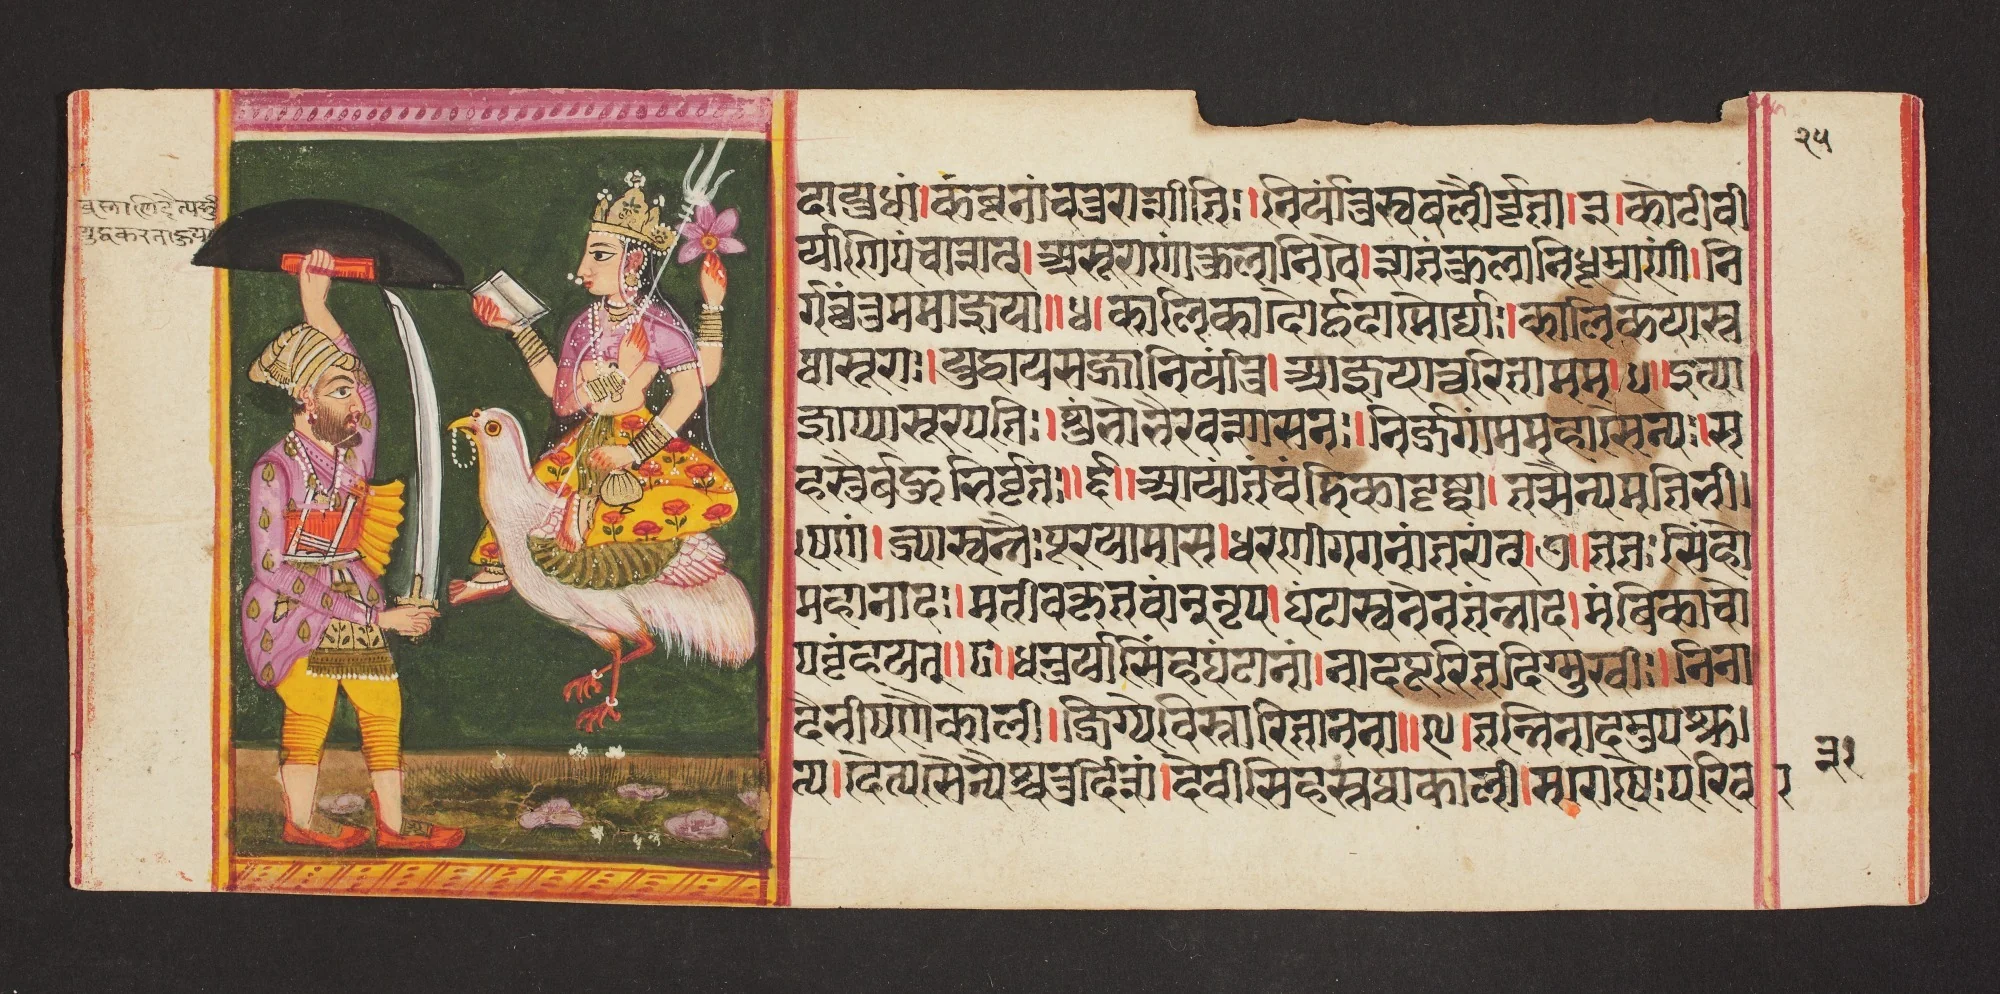 दायुधां।कंबूनांचतुरशीतिः।निर्यांतुस्वबलैर्वृता।३।कोटीवी
र्याणिपंचाशत्।असूराणांकुलानिवै।शतंकुलानिधूम्राणां।नि
र्गछंतुममाज्ञया॥४।कालिकादौर्हृदामौर्याः।कालिकेयास्त
थासूराः।युद्धायसज्जानिर्यांतु।आज्ञयात्वरितामम।५॥इत्या
ज्ञाप्यासूरपतिः।शुंभोभैरवशासनः।निर्जगाममहासैन्यः।स
हस्रैर्बहुभिर्वृतः॥६॥आयांतंचंडिकादृष्ट्वा।तत्सैन्यमतिभी।
षणं।ज्यास्वनैःपूरयामास।धरणीगगनांतरांत्।७॥ततःसिंहो
महानादः।मतीवकृतवांनृप।घंटास्वनेनतंन्नाद।मंबिकाचो
पबृंहयत्॥८॥धनुर्यासिंहघंटानां।नादपूरितदिग्मुखी।निना
दैर्भीषणैकाली।जिग्येविस्तारितानना॥९।तंनिनादमुपश्रु।
त्य।दैत्यसैन्यैश्चतुर्दिशं।देवीसिंहस्तथाकाली।सारोषैःपरिव
२५
३१